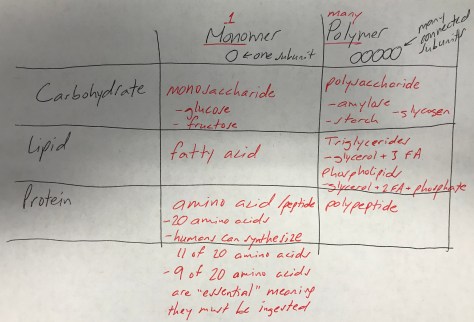 1
many
Monomer
Polymer
one subunit
many connected subunits
Carbohydrate
monosaccharide
-glucose
-fructose
polysaccharide
-amylose
-glycogen
-starch
Lipid
fatty acid
Triglycerides
-glycerol + 3 FA
phospholipids
-glycerol + 2 FA + phosphate
Protein
amino acid /peptide
-20 amino acids
-humans can synthesize
11 of 20 amino acids
-9 of 20 amino acids
are "essential" meaning
they must be ingested
polypeptide